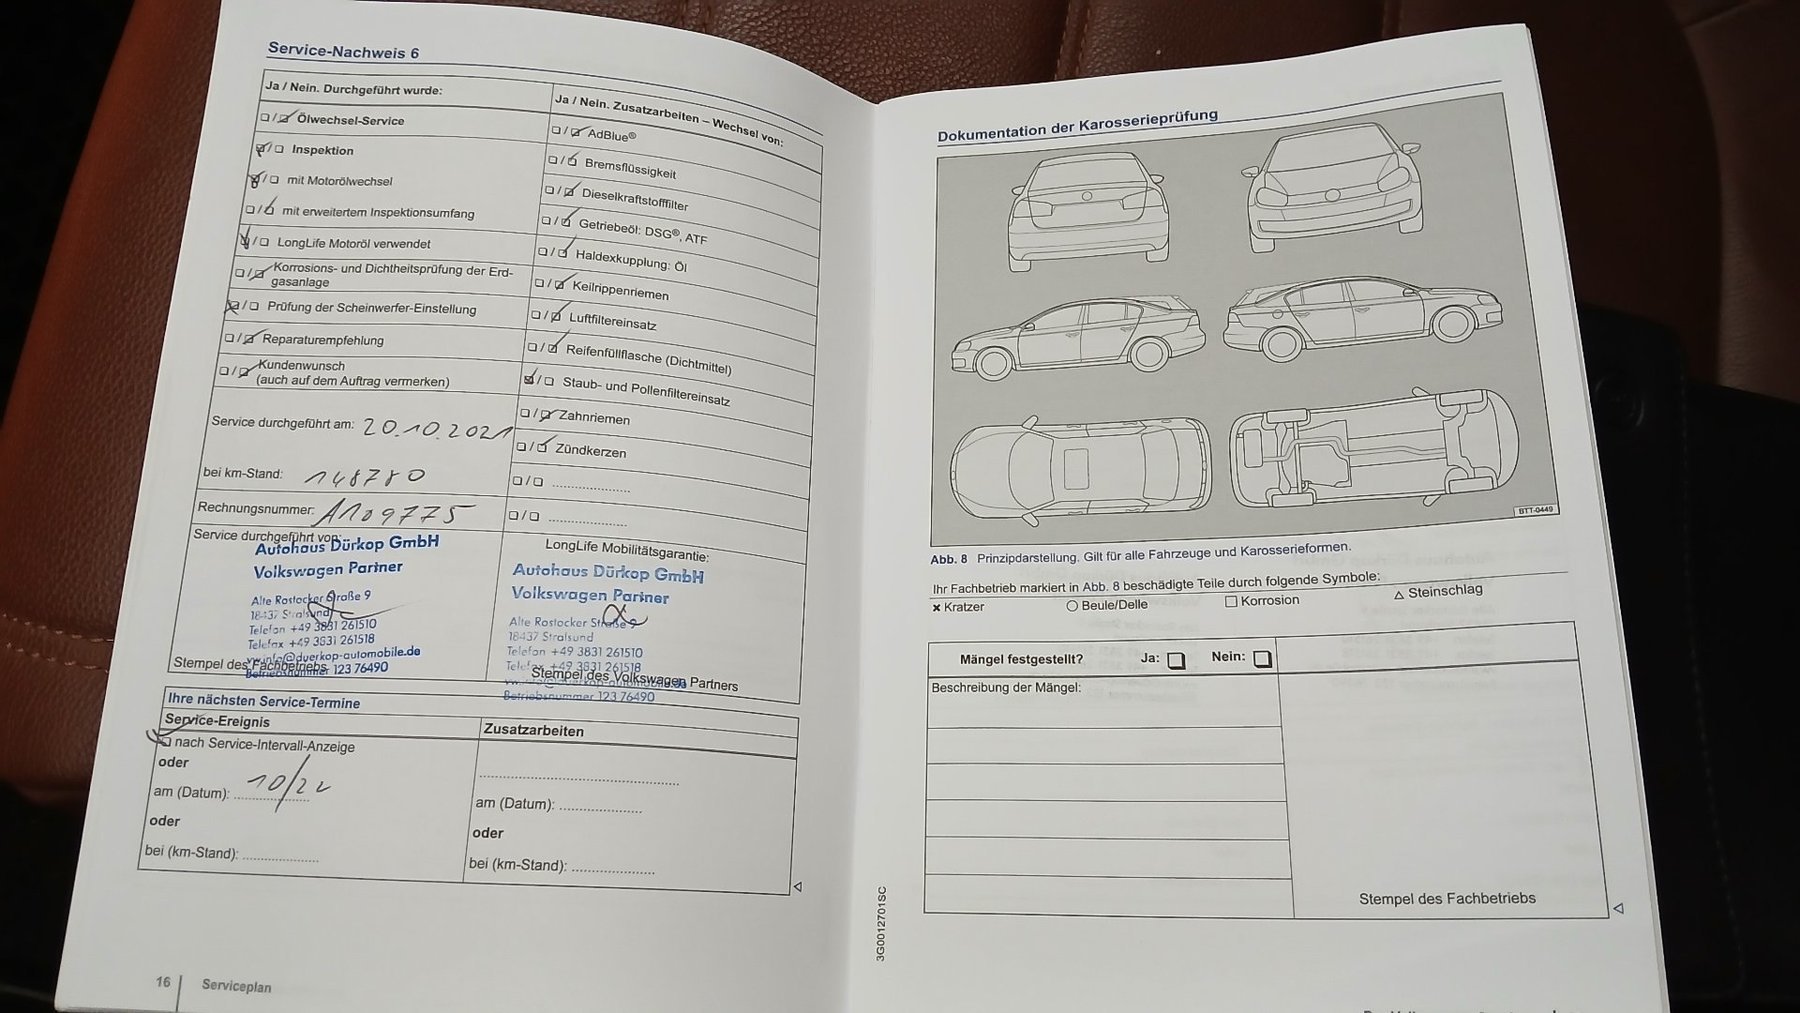 Service-Nachweis 6
Ja / Nein. Durchgeführt wurde:
❏ / ❏ Ölwechsel-Service
❏ / ❏ Inspektion
❏ / ❏ mit Motorölwechsel
❏ / ❏ mit erweitertem Inspektionsumfang
❏ / ❏ LongLife Motoröl verwendet
❏ / ❏ Korrosions- und Dichtheitsprüfung der Erd-
gasanlage
❏ / ❏ Prüfung der Scheinwerfer-Einstellung
❏ / ❏ Reparaturempfehlung
❏ / ❏ Kundenwunsch
(auch auf dem Auftrag vermerken)
Service durchgeführt am: 20.10.2021
bei km-Stand: 148780
Rechnungsnummer: A109775
Service durchgeführt von:
Autohaus Dürkop GmbH
Volkswagen Partner
Alte Rostocker Straße 9
18437 Stralsund
Telefon +49 3831 261510
Telefax +49 3831 261518
vw.info@duerkop-automobile.de
Betriebsnummer 123 76490
Stempel des Fachbetriebs
Ja / Nein. Zusatzarbeiten – Wechsel von:
❏ / ❏ AdBlue®
❏ / ❏ Bremsflüssigkeit
❏ / ❏ Dieselkraftstofffilter
❏ / ❏ Getriebeöl: DSG®, ATF
❏ / ❏ Haldexkupplung: Öl
❏ / ❏ Keilrippenriemen
❏ / ❏ Luftfiltereinsatz
❏ / ❏ Reifenfüllflasche (Dichtmittel)
❏ / ❏ Staub- und Pollenfiltereinsatz
❏ / ❏ Zahnriemen
❏ / ❏ Zündkerzen
❏ / ❏ ....................
❏ / ❏ ....................
LongLife Mobilitätsgarantie:
Autohaus Dürkop GmbH
Volkswagen Partner
Alte Rostocker Straße 9
18437 Stralsund
Telefon +49 3831 261510
Telefax +49 3831 261518
Betriebsnummer 123 76490
Stempel des Volkswagen Partners
Ihre nächsten Service-Termine
Service-Ereignis
❏ nach Service-Intervall-Anzeige
oder
am (Datum): 10/22
oder
bei (km-Stand): ....................
Zusatzarbeiten
am (Datum): ....................
oder
bei (km-Stand): ....................
16 Serviceplan
Dokumentation der Karosserieprüfung
BTT-0449
Abb. 8 Prinzipdarstellung. Gilt für alle Fahrzeuge und Karosserieformen.
Ihr Fachbetrieb markiert in Abb. 8 beschädigte Teile durch folgende Symbole:
× Kratzer ○ Beule/Delle □ Korrosion △ Steinschlag
Mängel festgestellt? Ja: ❏ Nein: ❏
Beschreibung der Mängel:
Stempel des Fachbetriebs
3G0012701SC